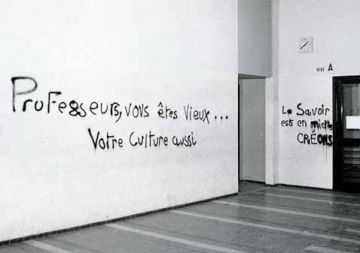 Professeurs, vous êtes Vieux...
Votre Culture aussi
VERS A
Le Savoir
est en miettes
CRÉONS